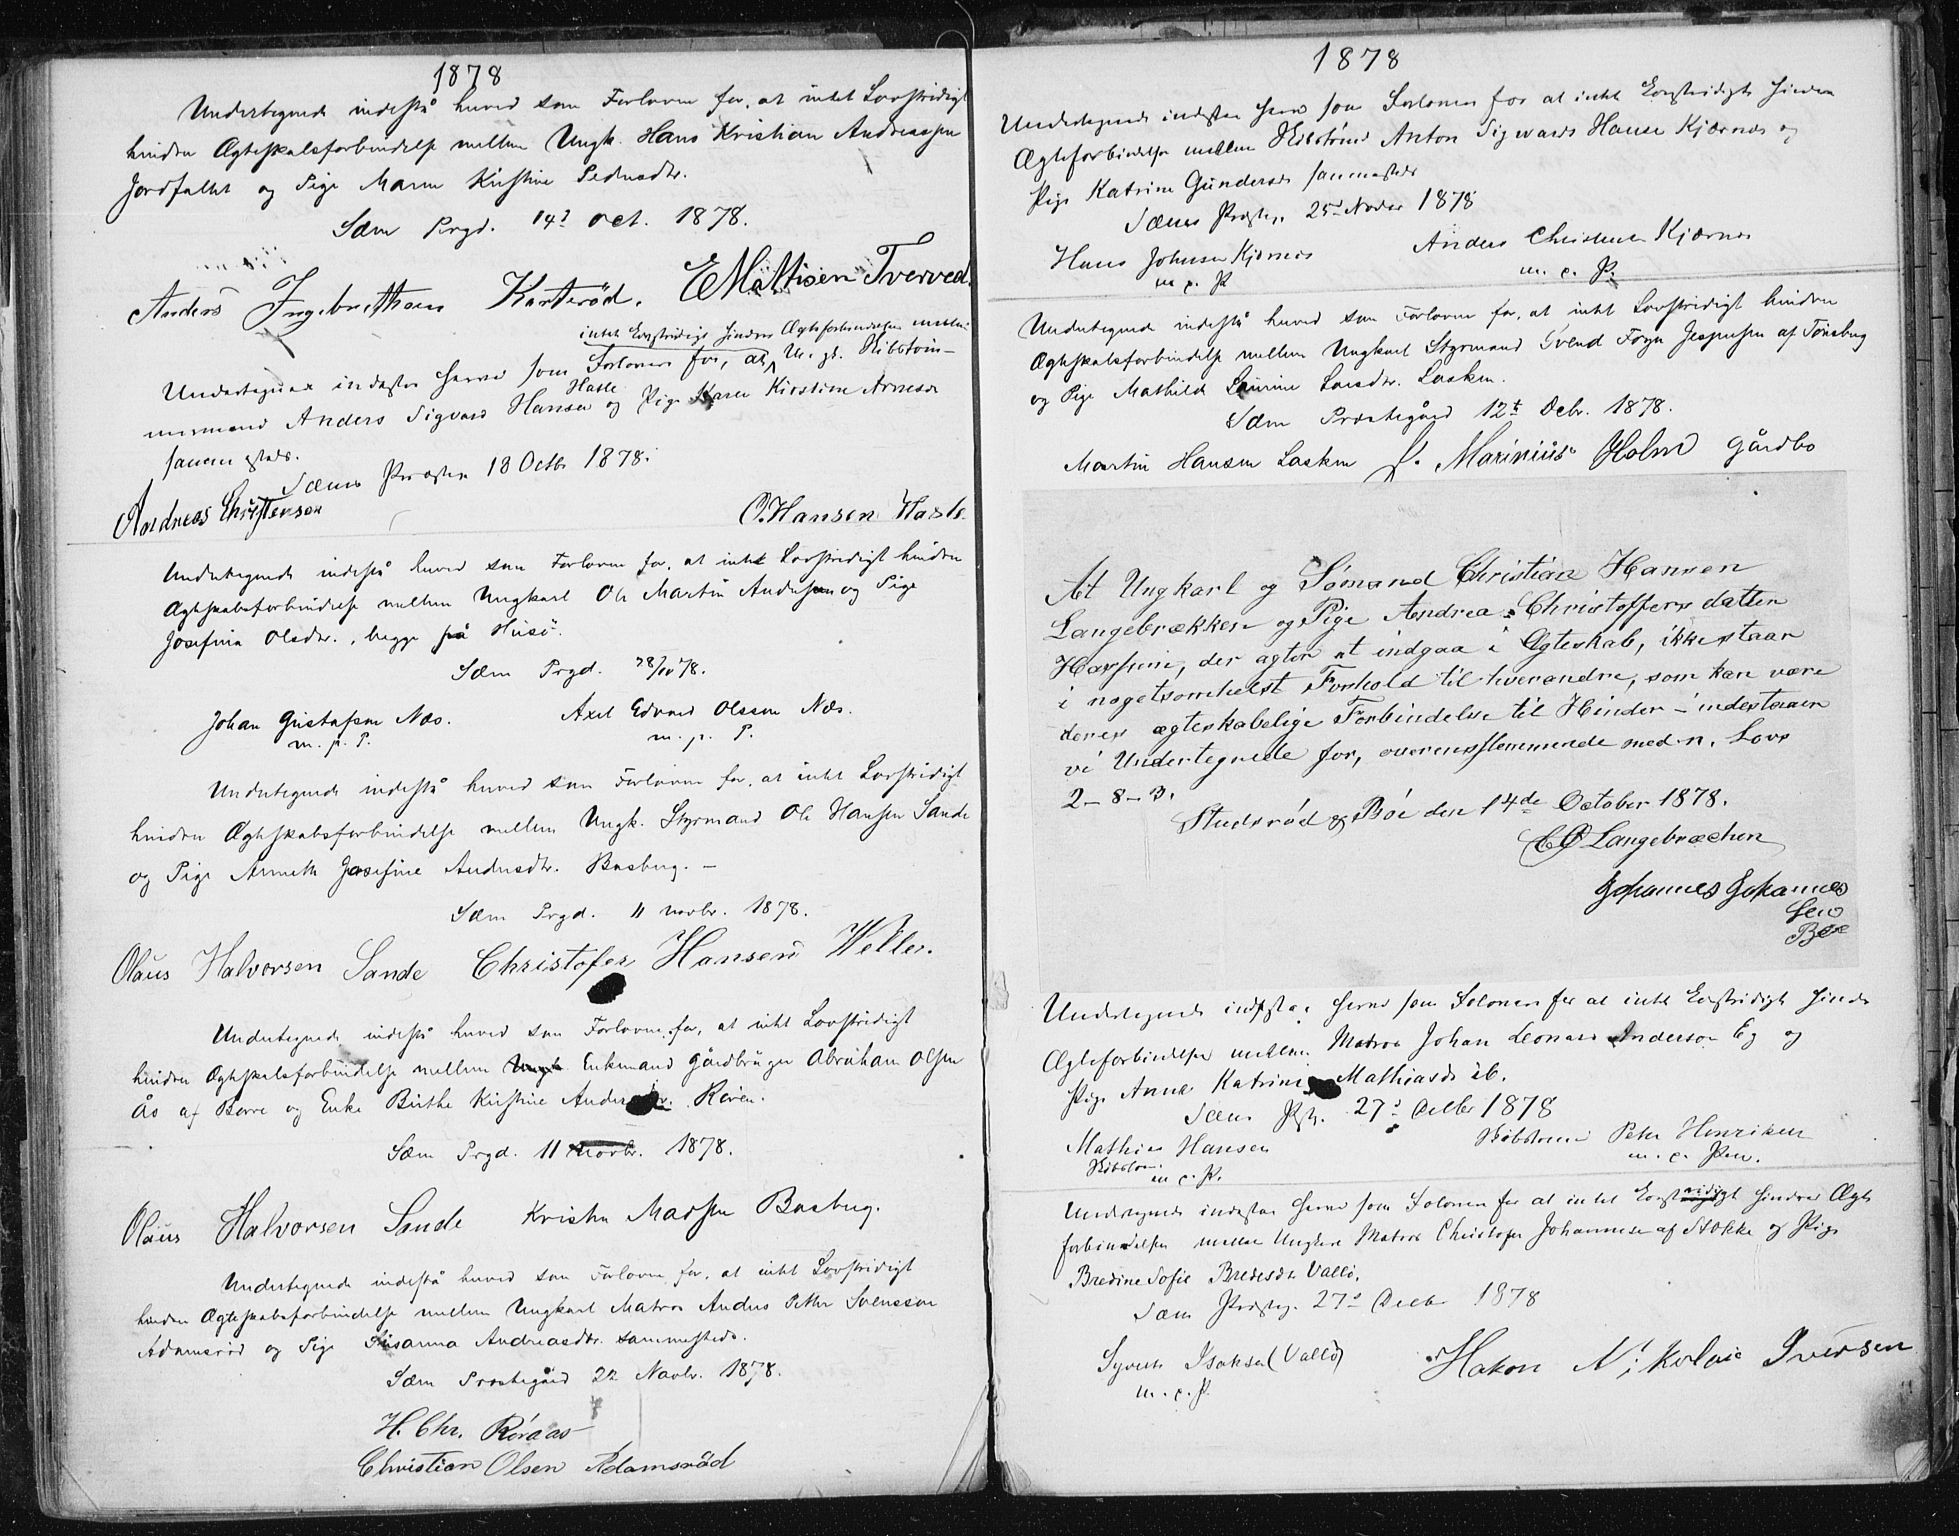 1878
Undertegnede indestå herved som Forlovere for, at intet Lovstridigt
hindrer Ægteskabsforbindelse mellem Ungk. Hans Kristian Andreassen
Jordfaldet og Pige Maren Kristine Pedersdtr.
Sæm Prgd. 14d Oct. 1878.
Anders Ingebrethsen Karterød. E Mattisen Tverved.
intet Lovstridigt hindrer Ægteforbindelsen mellem
Undertegnede indestaa herved som Forlovere for, at Ungk. Skibstøm-
mermand Anders Sigvard Hansen Hasle og Pige Karen Kirstine Arnesdr
sammesteds.
Sæms Præsteg 18 Octbr 1878.
Andreas Christensen O. Hansen Hasle.
Undertegnede indestå herved som Forlovere for, at intet Lovstridigt hindrer
Ægteskabsforbindelse mellem Ungkarl Ole Martin Andersen og Pige
Josefina Olsdtr., begge på Husø.
Sæm Prgd. 28/10 78.
Johan Gustafsen Næs. Axel Edvard Olssen Næs.
m. p. P. m. p. P.
Undertegnede indestå herved som Forlovere for, at intet Lovstridigt
hindrer Ægteskabsforbindelse mellem Ungk. Styrmand Ole Hansen Sande
og Pige Anneth Josefine Andersdtr. Basberg. –
Sæm Prgd. 11 novbr. 1878.
Olaus Halvorsen Sande Christofer Hansen Weller.
Undertegnede indestå herved som Forlovere for, at intet Lovstridigt
hindrer Ægteskabsforbindelse mellem Ungk. Enkemand Gårdbruger Abraham Olsen
Ås af Borre og Enke Birthe Kirstine Andersdtr. Røren.
Sæm Prgd. 11 novbr. 1878.
Olaus Halvorsen Sande Kristen Madsen Basberg.
Undertegnede indestå herved som Forlovere for, at intet Lovstridigt
hindrer Ægteskabsforbindelse mellem Ungkarl Matros Anders Petter Svensson
Adamsrød og Pige Susanna Andreasdtr. sammesteds.
Sæm Præstegård 22 Novbr. 1878.
H. Chr. Røraas
Christian Olsen Adamsrød
1878
Undertegnede indestaa herved som Forlovere for at intet Lovstridigt hindrer
Ægteforbindelse mellem Skibstømd Anton Sigvard Hanse Kjærnæs og
Pige Katrine Gundersdr sammesteds
Sæms Præsteg. 25d Novbr 1878
Hans Johnsen Kjærnæs Anders Christensen Kjærnæs
m p. P m. p. P.
Undertegnede indestå herved som Forlovere for, at intet Lovstridigt hindrer
Ægteskabsforbindelse mellem Ungkarl Styrmand Svend Foyn Jespersen af Tønsberg
og Pige Mathilde Laurine Larsdtr. Lasken.
Sæm Præstegård 12te Decbr. 1878.
Martin Hansen Lasken J. Marinius Holm Gårdbo
At Ungkarl og Sømand Christian Hansen
Langebrækken og Pige Andrea Christoffersdatter
, der agter at indgaa i Ægteskab, ikke staar
i nogetsomhelst Forhold til hverandre, som kan være
deres ægteskabelige Forbindelse til Hinder – indestaaer
vi Undertegnede for, overensstemmende med n. Lovs
2 – 8 – 3.
Studsrød & Bøe den 14de October 1878.
C O Langebræchen
Johannes Johannes
sen
Bøe
Undertegnede indestaa herved som Forlovere for at intet Lovstridigt hindrer
Ægteforbindelse mellem Matros Johan Leonard Anderson Eg og
Pige Anne Katrine Mathiasdr ib.
Sæms Pstg. 27d Decbr 1878
Mathias Hansen Skibstømm Peter Henriksen
Skibstøm. m. p. Pen.
m p. P.
Undertegnede indestaa herved som Forlovere for at intet Lovstridigt hindrer Ægte
forbindelse mellem Ungkarl Matros Christofer Johannesen af Stokke og Pige
Bredine Sofie Bredesdtr Vallø.
Sæm Præsteg. 27d Decbr 1878
Syvert Isaksen (Vallø) Hakon Nikolai Iversen
m. p. P.